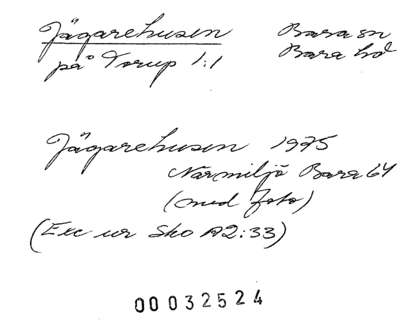 Jägarehusen Bara sn
på Torup 1:1 Bara hd
Jägarehusen 1975
Närmiljö Bara 64
(med foto)
(Exc ur Sko A2:33)
00032524